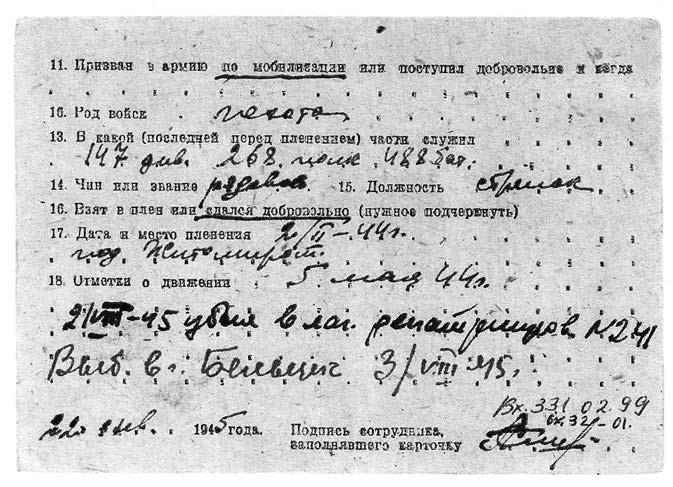 11. Призван в армию по мобилизации или поступил добровольно и когда
16. Род войск пехота
13. В какой (последней перед пленением) части служил
147 див. 268 полк 488 бат.
14. Чин или звание рядовой 15. Должность стрелок
16. Взят в плен или сдался добровольно (нужное подчеркнуть)
17. Дата и место пленения 2/II-44г.
под Житомиром.
18. Отметки о движении 5 мая 44г.
2/VIII-45 убыл в лаг. репатриируов N241
Выб. в г. Бельцы 3/VIII 45г.
Вх.331 02.99
вх.32 -01.
22 янв. 1945 года. Подпись сотрудника,
заполнявшего карточку